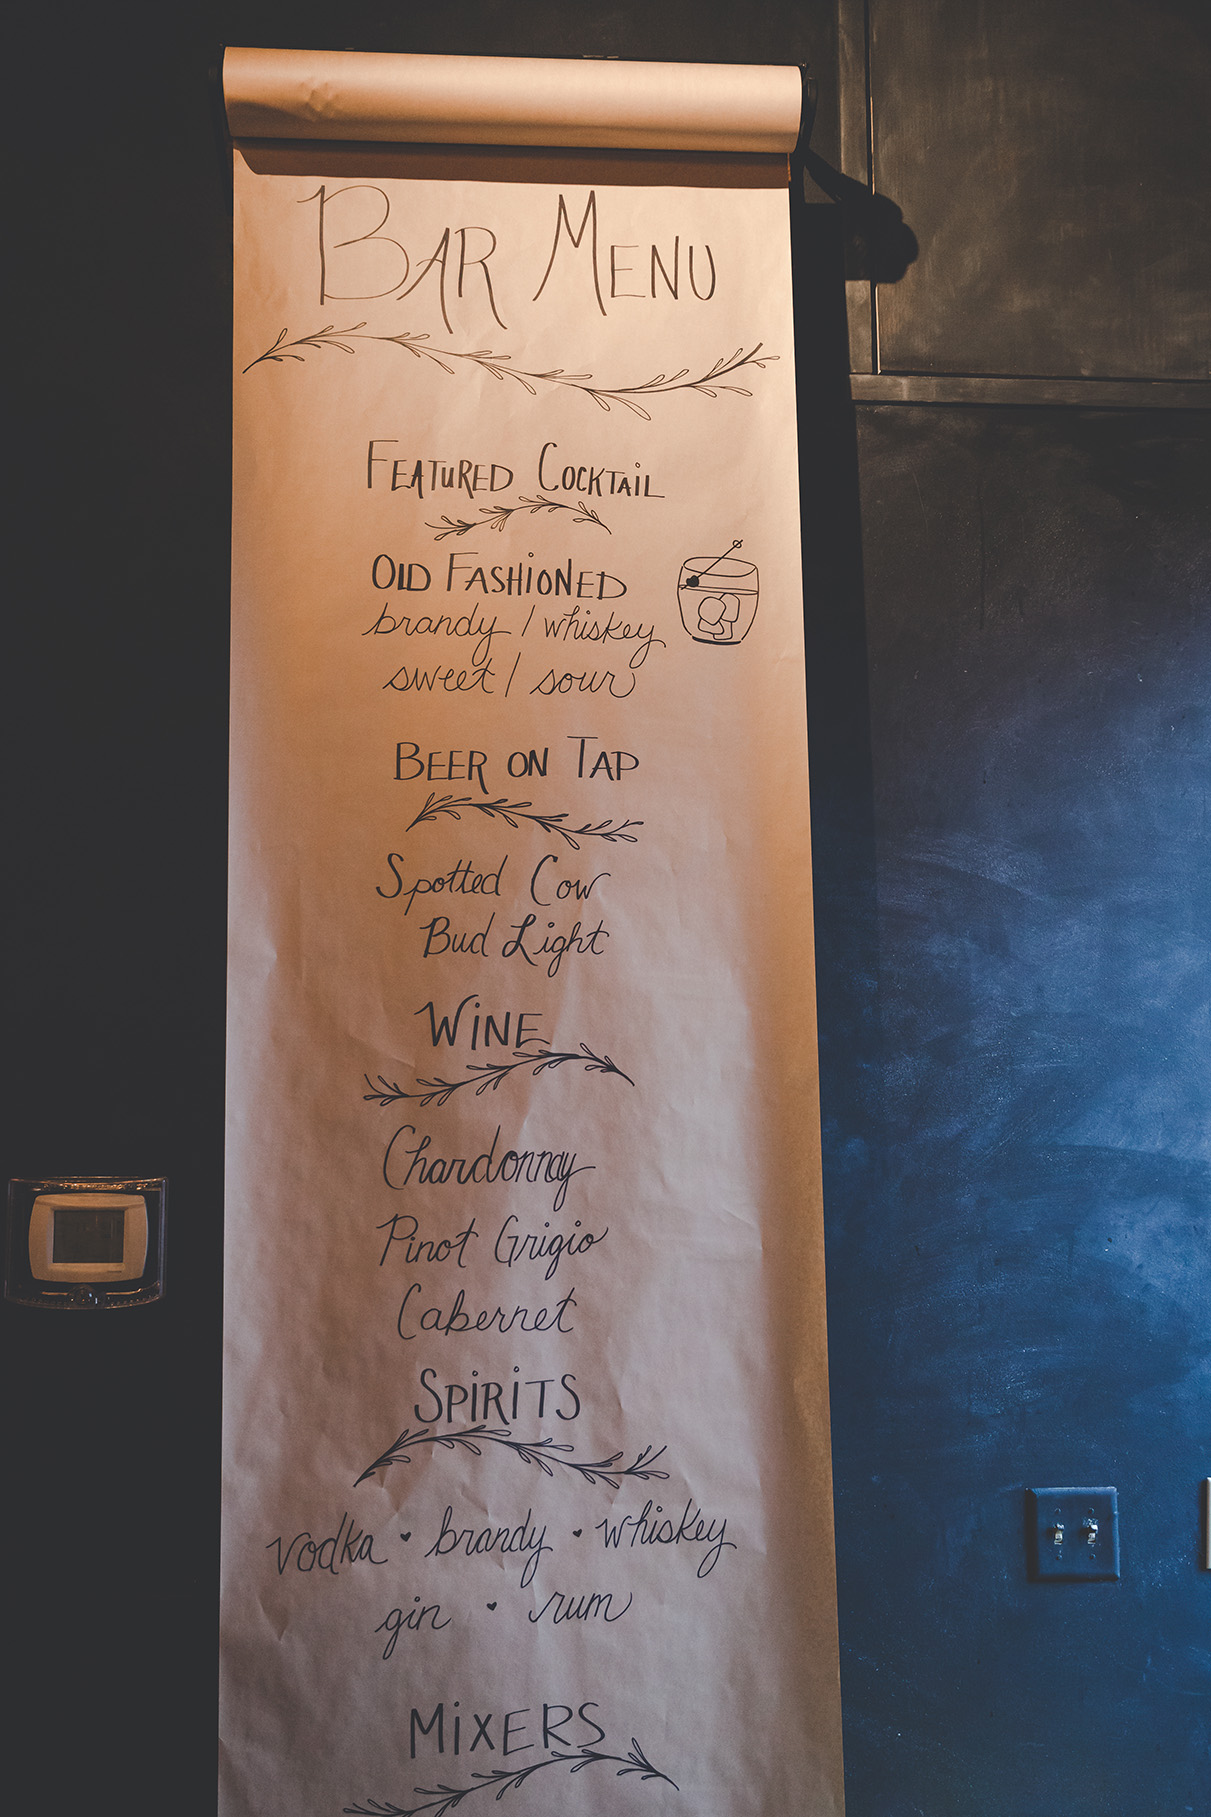 BAR MENU
FEATURED COCKTAIL
OLD FASHIONED
brandy / whiskey
sweet / sour
BEER ON TAP
Spotted Cow
Bud Light
WINE
Chardonnay
Pinot Grigio
Cabernet
SPIRITS
vodka ♥ brandy ♥ whiskey
gin ♥ rum
MIXERS